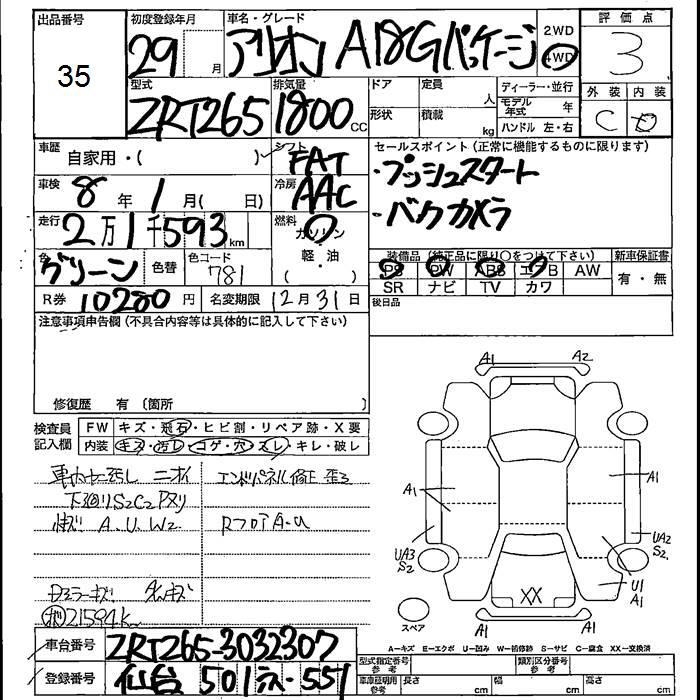 出品番号
35
初度登録年月
29 月
車名・グレード
アリオン A18Gパッケージ
2WD
4WD
評価点
3
型式
ZRT265
排気量
1800 cc
ドア
定員
人
形状
積載
kg
ディーラー・並行
モデル年式 年
ハンドル 左・右
外装 内装
C D
車歴
自家用・( )
シフト
FAT
車検
8 年 1 月( 日)
冷房
AAC
走行
2万1千593 km
燃料
ガソリン
軽・油
( )
色
グリーン
色替
色コード
781
R券 10280 円
名変期限 12月31日
セールスポイント(正常に機能するものに限ります)
・プッシュスタート
・バックカメラ
装備品(純正品に限り○をつけて下さい)
新車保証書
PS PW ABS エアB AW
有・無
SR ナビ TV カワ
後日品
注意事項申告欄(不具合内容等は具体的に記入して下さい)
修復歴 有 〔箇所
検査員
記入欄
FW キズ・飛石・ヒビ割・リペア跡・X要
内装 キズ・汚レ・コゲ・穴・スレ・キレ・破レ
ニオイ
下廻りS2C2
A.U.W2
エンドパネル修正
21594k
A1 A2
A1
A1
UA3
S2
UA2
S2
U1
A1
XX
A1 A1
スペア
A-キズ E-エクボ U-凹み W-補修跡 S-サビ C-腐食 XX-交換済
車台番号
ZRT265-3032307
登録番号
仙台 501 551
型式指定番号
参考
類別区分番号
参考
車庫証明用
参考
長さ cm
幅 cm
高さ cm